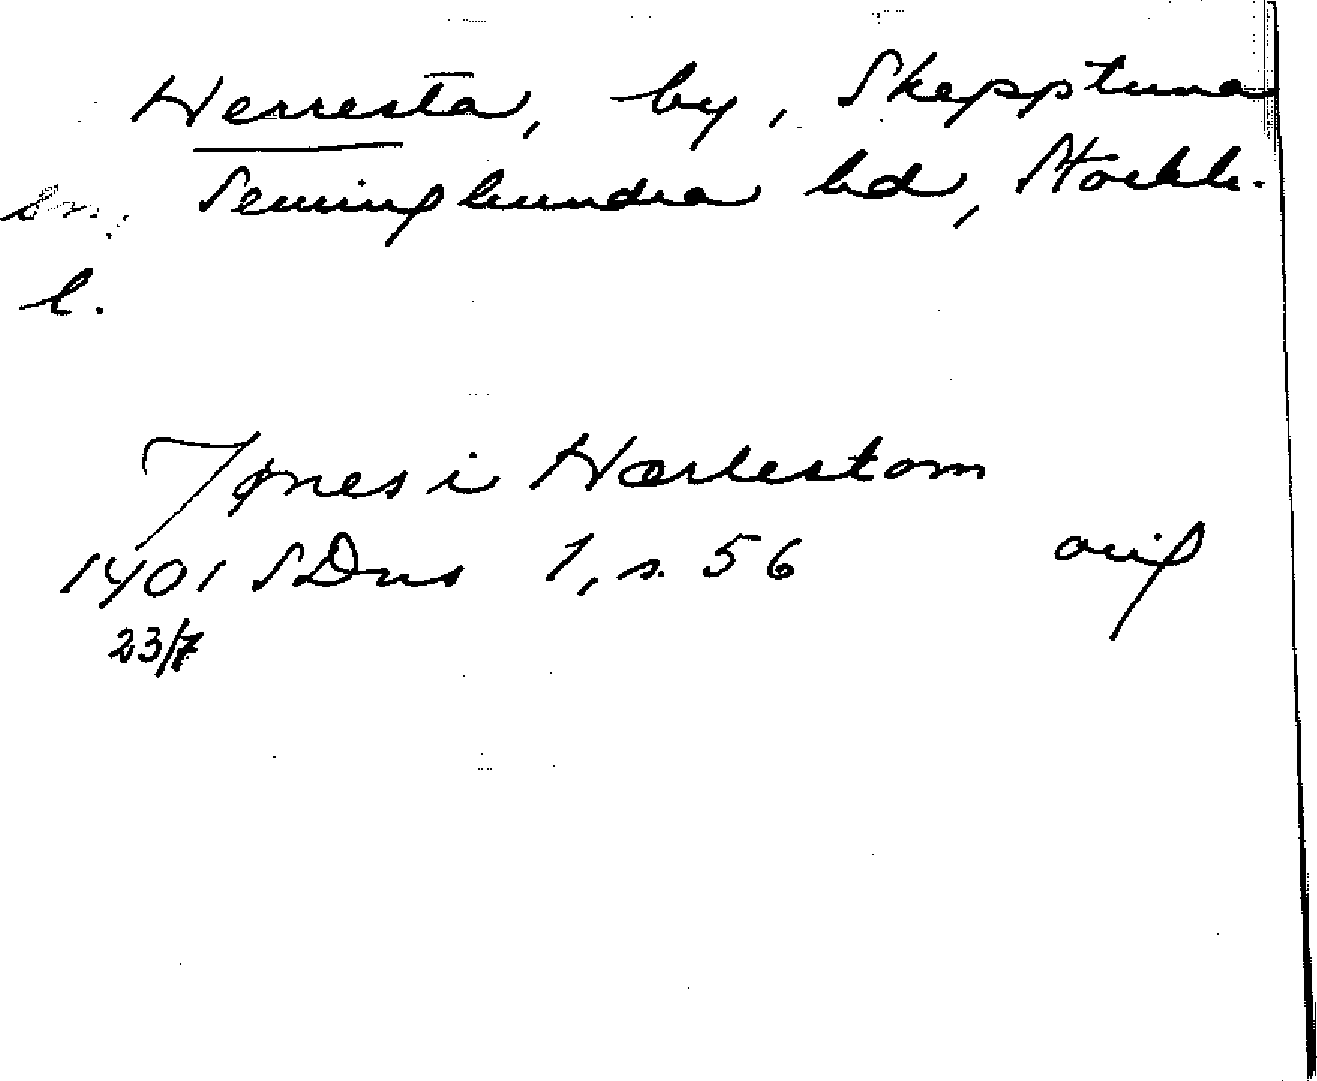 Herresta, by, Skepptuna
sn, Seminghundra hd, Stockh.
l.
Tønes i Hærlestom
1401 SDns 1, s. 56 orig
23/7